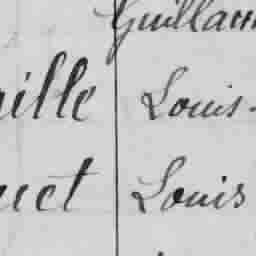 Guillaum
ille Louis-
uet Louis